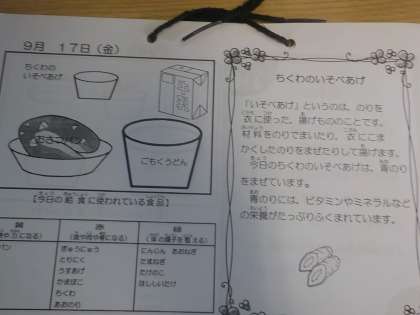 9月 17日(金)
ちくわの
いそべあげ
ごもくうどん
【今日の給食に使われている食品】
赤
緑
(血や肉や骨になる)
(体の調子を整える)
パン
ぎゅうにゅう
とりにく
うすあげ
かまぼこ
ちくわ
あおのり
にんじん あおねぎ
たまねぎ
たけのこ
ほししいたけ
ちくわのいそべあげ
「いそべあげ」というのは、のりを
衣に使った、揚げもののことです。
材料をのりでまいたり、衣にこま
かくしたのりをまぜたりして揚げます。
今日のちくわのいそべあげは、青のり
をまぜています。
青のりには、ビタミンやミネラルなど
の栄養がたっぷりふくまれています。